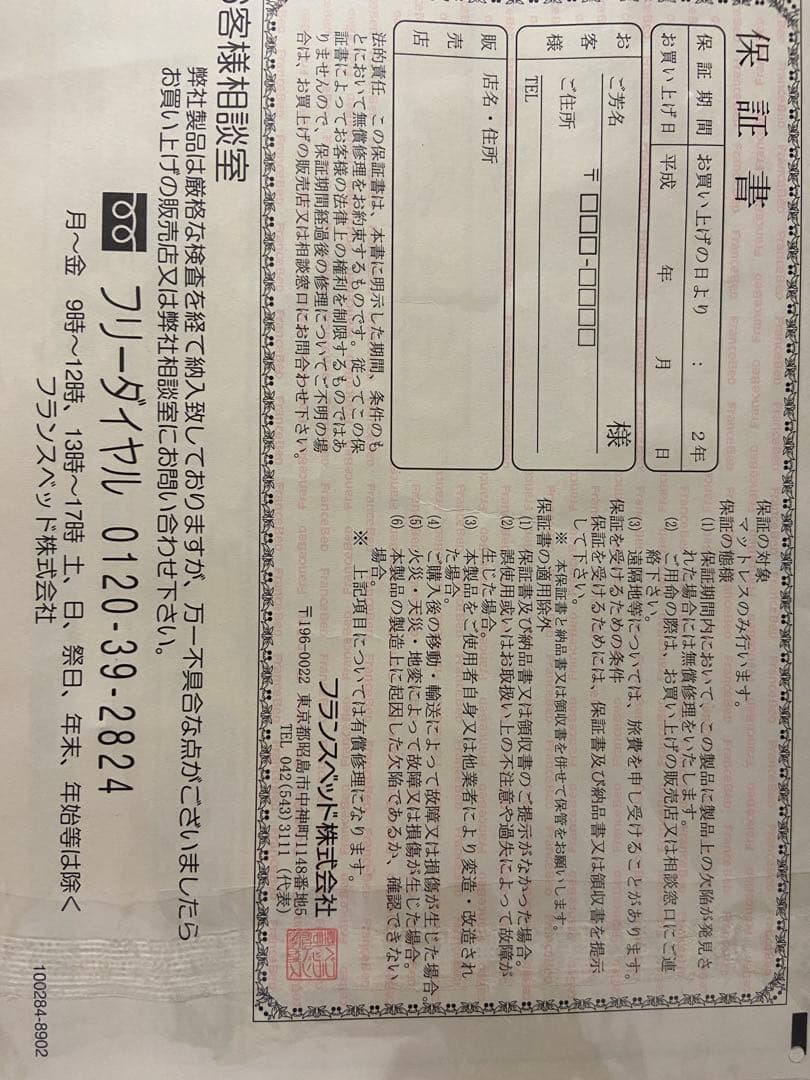 保証書
保証期間 お買い上げの日より : 2年
お買い上げ日 平成 年 月 日
お客様
ご芳名 様
〒□□□-□□□□
ご住所
TEL
販売店
店名・住所
法的責任 この保証書は、本書に明示した期間、条件のも
とにおいて無償修理をお約束するものです。従ってこの保
証書によってお客様の法律上の権利を制限するものではあ
りませんので、保証期間経過後の修理についてご不明の場
合は、お買上げの販売店又は相談窓口にお問合わせ下さい。
保証の対象
マットレスのみ行います。
保証の態様
(1) 保証期間内において、この製品に製品上の欠陥が発見さ
れた場合には無償修理をいたします。
(2) ご用命の際は、お買い上げの販売店又は相談窓口にご連
絡下さい。
(3) 遠隔地等については、旅費を申し受けることがあります。
保証を受けるための条件
保証を受けるためには、保証書及び納品書又は領収書を提示
して下さい。
※ 本保証書と納品書又は領収書を併せて保管をお願いします。
保証書の適用除外
(1) 保証書及び納品書又は領収書のご提示がなかった場合。
(2) 誤使用或いはお取扱い上の不注意や過失によって故障が
生じた場合。
(3) 本製品をご使用者自身又は他業者により変造・改造され
た場合。
(4) ご購入後の移動・輸送によって故障又は損傷が生じた場合。
(5) 火災・天災・地変によって故障又は損傷が生じた場合。
(6) 本製品の製造上に起因した欠陥であるか、確認できない
場合。
※ 上記項目については有償修理になります。
フランスベッド株式会社
〒196-0022 東京都昭島市中神町1148番地5
TEL 042(543)3111(代表)
お客様相談室
弊社製品は厳格な検査を経て納入致しておりますが、万一不具合な点がございましたら
お買い上げの販売店又は弊社相談室にお問い合わせ下さい。
フリーダイヤル 0120-39-2824
月～金 9時～12時、13時～17時 土、日、祭日、年末、年始等は除く
フランスベッド株式会社
100284-8902